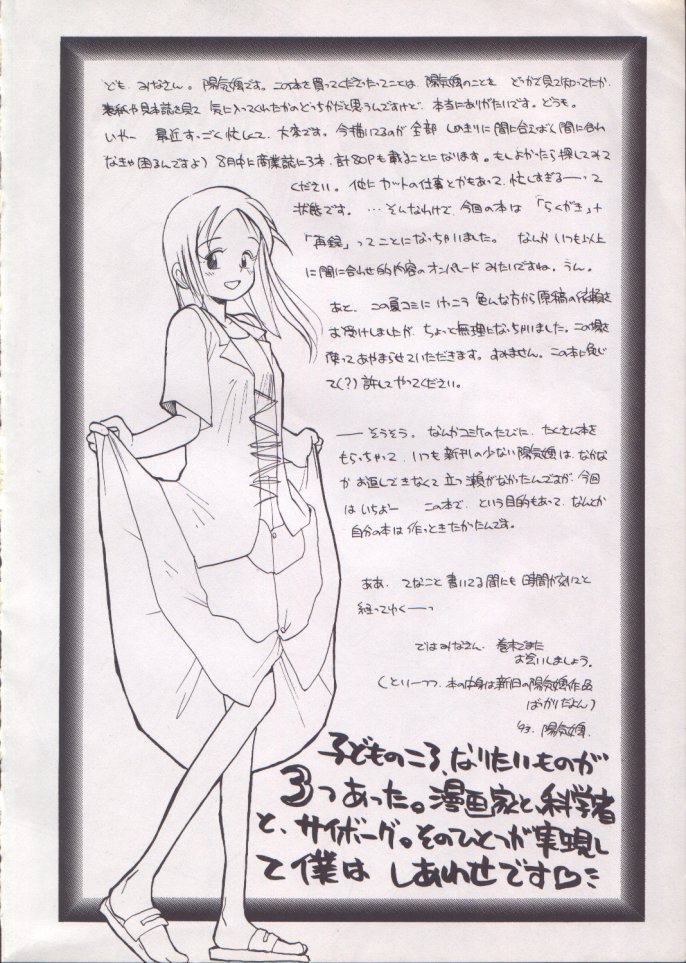 ども、みなさん。陽気婢です。この本を買ってくださったってことは、陽気婢のことを どっかで見て知ってたか、
表紙や見本誌を見て 気に入ってくれたかのどっちかだと思うんですけど、本当にありがたいです。どうも。
いやー 最近すっごく忙しくて、大変です。今描いてるのが全部 しめきりに間に合えばく間に合わ
なきゃ困るんですよ)8月中に商業誌に3本、計80Pも載ることになります。もしよかったら探してみて
ください。他にカットの仕事とかもあって、忙しすぎるーーって
状態です。…そんなわけで、今回の本は「らくがき」+
「再録」ってことになっちゃいました。なんか いつも以上
に間に合わせ的内容のオンパレードみたいですね。うん。
あと、この夏コミに けっこう 色んな方から原稿の依頼を
お受けしましたが、ちょっと無理になっちゃいました。この場を
借りてあやまらせていただきます。すみません。この本に免じ
て(?)許してやってください。
――そうそう。なんかコミケのたびに、たくさん本を
もらっちゃって、いつも新刊の少ない陽気婢は、なかなか
お返しできなくて立つ瀬がなかったんですが、今回
はいちおー この本で、という目的もあって、なんとか
自分の本は作っときたかったんです。
ああ、てなこと書いてる間にも時間が刻々と
経ってゆくーっ
ではみなさん、巻末でまた
お会いしましょう。
(といーつつ、本の中身は新旧の陽気婢作品
ばっかりだよん)
'93. 陽気婢.
子どものころ、なりたいものが
3つあった。漫画家と、科学者
と、サイボーグ。そのひとつが実現し
て僕は しあわせです♡